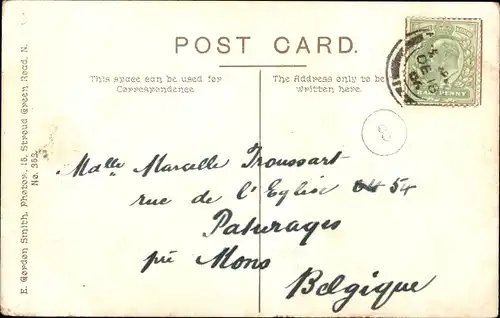 POST CARD.
This space can be used for
Correspondence
The Address only to be
written here.
E. Gordon Smith, Photor. 15, Stroud Green Road, N.
No. 353.
PENNY
DE
Malle Marcelle Troussart
rue de l'Eglise 54
Paturages
pré Mons
Belgique